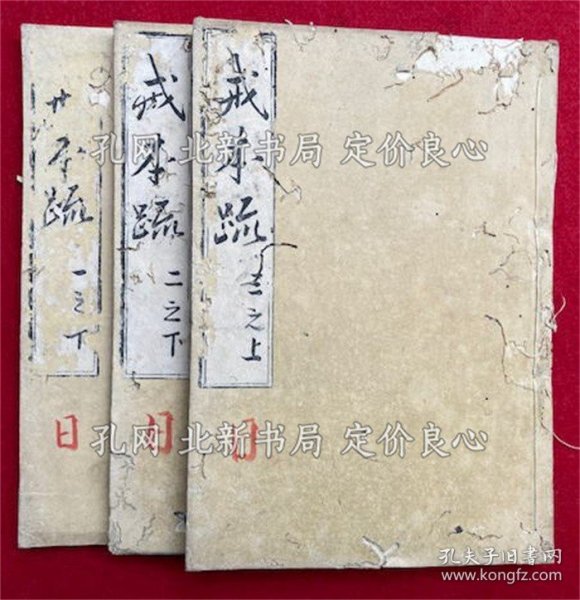 戒本疏
三之上
戒本疏
二之下
本疏
一之下
日
孔网 北新书局 定价良心
孔网 北新书局 定价良心
孔夫子旧书网
www.kongfz.com